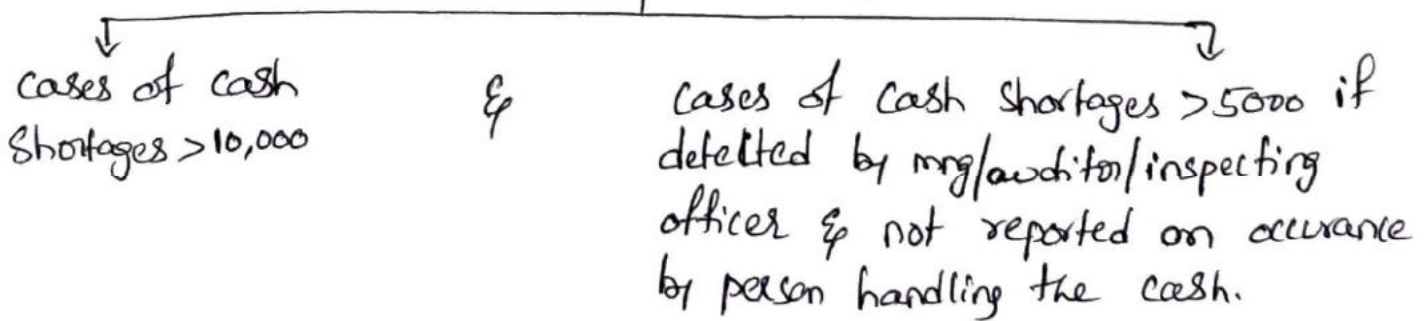 cases of cash
Shortages > 10,000
&
cases of cash shortages > 5000 if
detelted by mng/auditor/inspecting
officer & not reported on occurance
by person handling the cash.